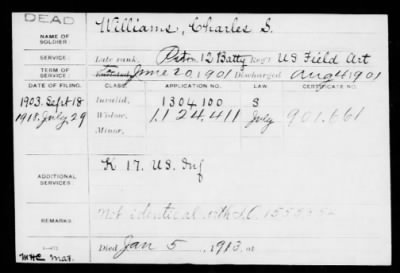 DEAD
NAME OF SOLDIER: Williams, Charles S.
SERVICE: Late rank, 12 Batty Reg't US Field Art
June 20, 1901 Discharged Aug 4 1901
DATE OF FILING. CLASS. APPLICATION NO. LAW CERTIFICATE NO.
1903. Sept 18 Invalid, 1304,100 S
1918. July 29 Widow, 1,124,411 July 901,661
Minor,
ADDITIONAL SERVICES: K 17. U.S. Inf
REMARKS: not identical with S.C.
Died Jan 5, 1913, at